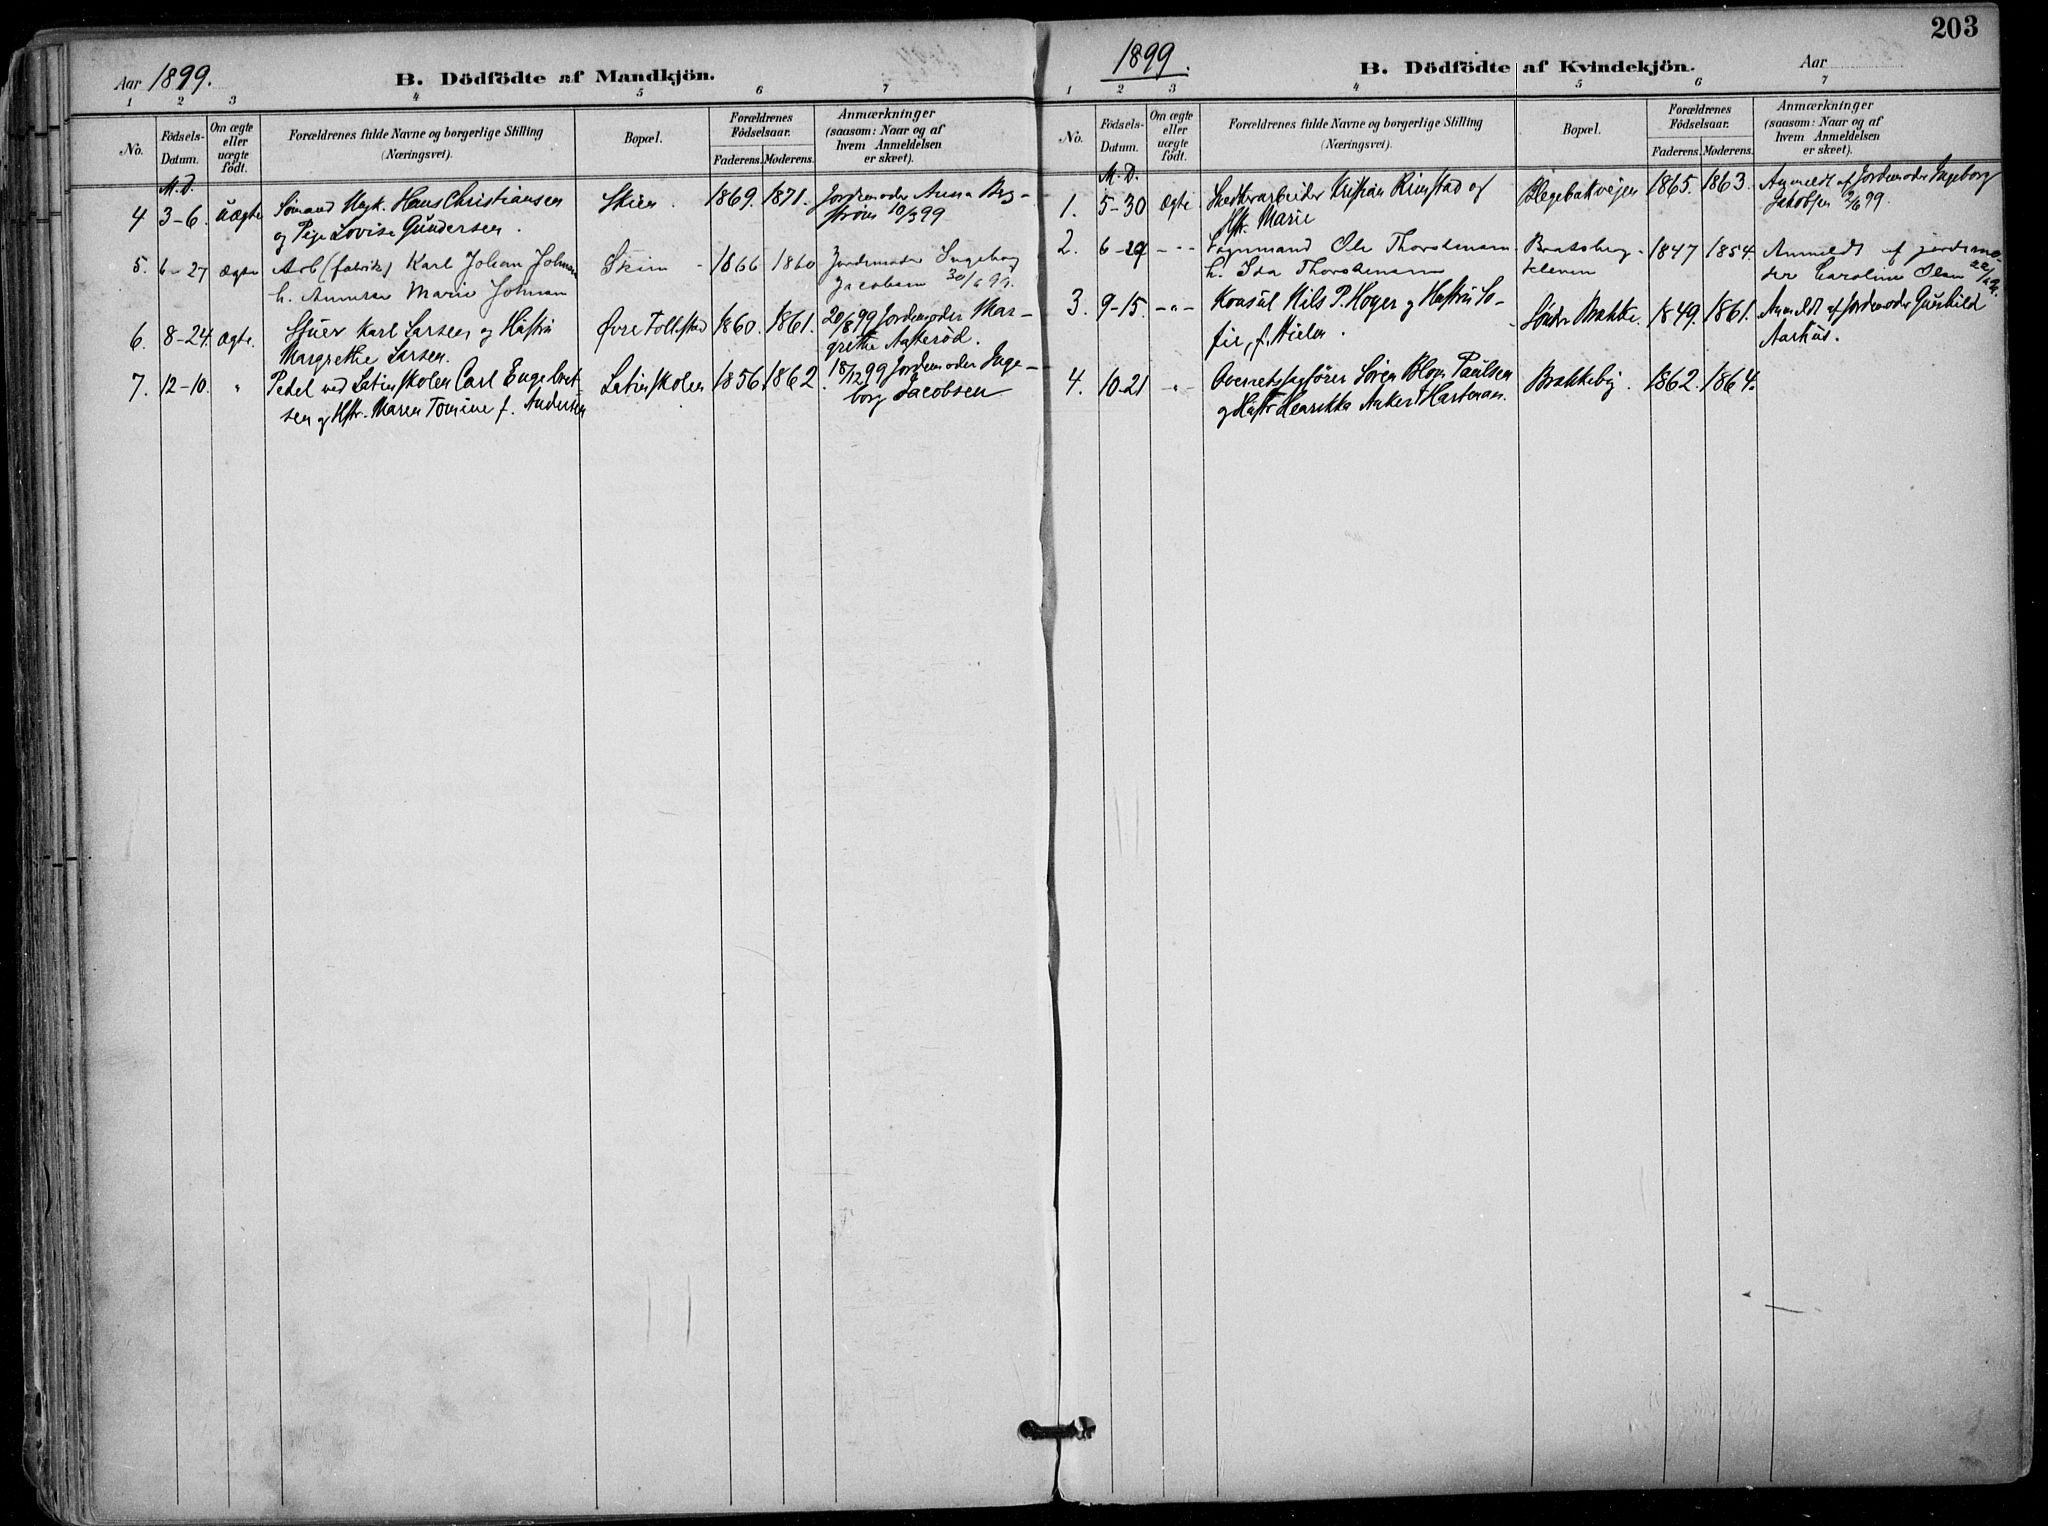 203
Aar 1899.
B. Dödfödte af Mandkjön.
1 2 3 4 5 6 7
No.
Födsels-
Datum.
Om ægte
eller
uægte
födt.
Forældrenes fulde Navne og borgerlige Stilling
(Næringsvei).
Bopæl.
Forældrenes
Födselsaar.
Faderens. Moderens.
Anmærkninger
(saasom: Naar og af
hvem Anmeldelsen
er skeet).
M. D.
4 3-6. uægte Sømand Ugk. Hans Christiansen Skien. 1869. 1871. Jordemoder Anna Berg-
og Pige Lovise Gundersen. strøm 10/3 99
5. 6-27 ægte Arb (fabrik) Karl Johan Johnsen Skien 1866 1860 Jordemoder Ingeborg
h. Marie Johnsen Jacobsen 30/6 99.
6. 8-24. ægte. Karl Larsen og Hustru Øvre Follestad 1860. 1861. 20/8 99 Jordemoder Mar-
Margrethe Larsen. grethe
7. 12-10. " Pedel ved Latinskolen Carl Engebret- Latinskolen 1856. 1862. 18/12 99 Jordemoder Inge-
sen og Hstr. Maren Tomine f. Andersen borg Jacobsen
1899.
B. Dödfödte af Kvindekjön.
Aar
1 2 3 4 5 6 7
No.
Födsels-
Datum.
Om ægte
eller
uægte
födt.
Forældrenes fulde Navne og borgerlige Stilling
(Næringsvei).
Bopæl.
Forældrenes
Födselsaar.
Faderens. Moderens.
Anmærkninger
(saasom: Naar og af
hvem Anmeldelsen
er skeet).
M. D.
1. 5-30 ægte Kristian Rimstad og Blegebakvejen 1865. 1863. Anmeldt af Jordemoder Ingeborg
Hstr. Marie Jakobsen 2/6 99.
2. 6-29 -"- Ole Thorstensen Bratsberg- 1847 1854. Anmeldt af jordemo-
h. Ida Thorstensen kleven der Caroline Olsen
3. 9-15. -"- Konsul Nils P. Høyer og Hustru So- Søndre Brække. 1849. 1861. Anmeldt af Jordemoder Gunhild
fie, f. Aarhus.
4. 10-21 -"- Overretssagfører Søren Blom Paulsen Brekkeby. 1862. 1864.
og Hustr. Henrikka Hartman.